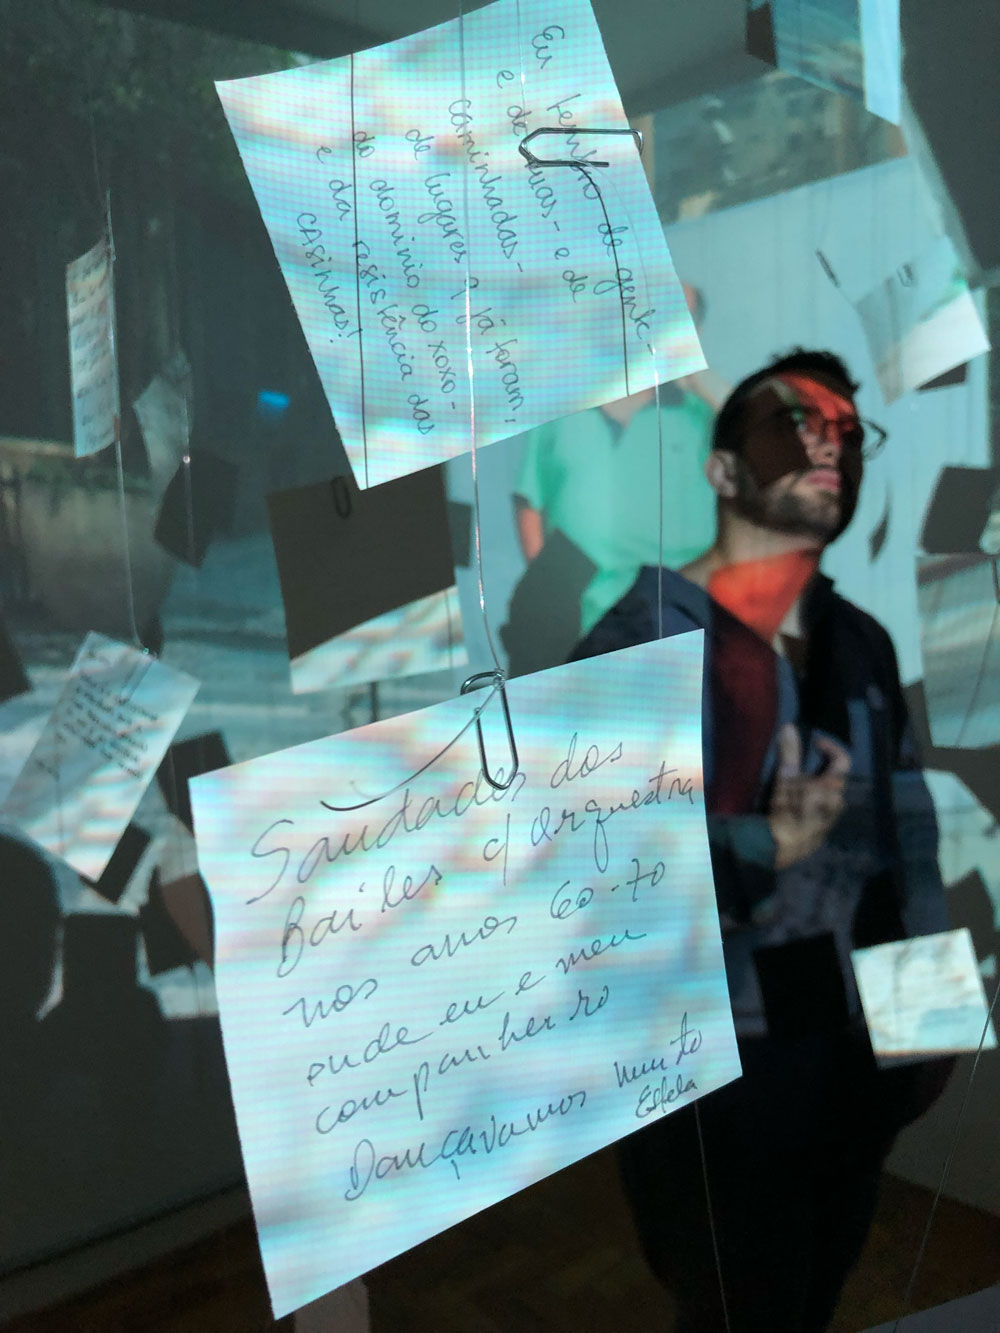 Eu tenho de gente -
e de ruas - e de
caminhadas -
de lugares q já foram!
do dominio do xoxo -
e da resistência das
casinhas!
Saudades dos
Bailes c/ orquestra
nos anos 60-70
onde eu e meu
companheiro
Dançávamos muito
Estela